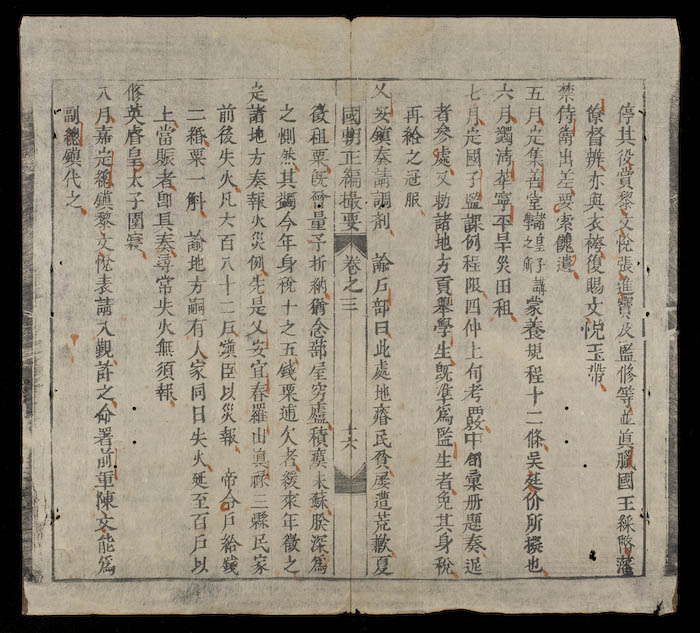 停其役賞黎文悅張進寶及監修等並真臘國王綵幣藩
僚督辦亦與衣袴復賜文悅玉帶
禁侍衛出差要索餽遺
五月定集善堂諸皇子講學之所蒙養規程十二條吳廷价所擬也
六月蠲清華寧平旱災田租
七月定國子監課例程限四仲上旬考覈中旬彙册題奏
者參處又勅諸地方貢舉學生既準為監生者免其身稅
再給之冠服
乂安鎮奏請調劑 諭戶部曰此處地瘠民貧屢遭荒歉夏
國朝正編撮要 卷之三 十六
徵租粟既曾量予折納猶念蔀屋穷廬積瘼未蘇朕深為
之惻然其蠲今年身稅十之五錢粟逋欠者緩來年徵之
定諸地方奏報火災例先是乂安宜春羅山真祿三縣民家
前後失火凡大百八十二戶鎮臣以災報 帝命戶給錢
二緡粟一斛 諭地方嗣有人家同日失火延至百戶以
上當賑者即具奏尋常失火無須報
修英睿皇太子園寢
八月嘉定總鎮黎文悅表請入覲許之命署前軍陳文能為
副總鎮代之